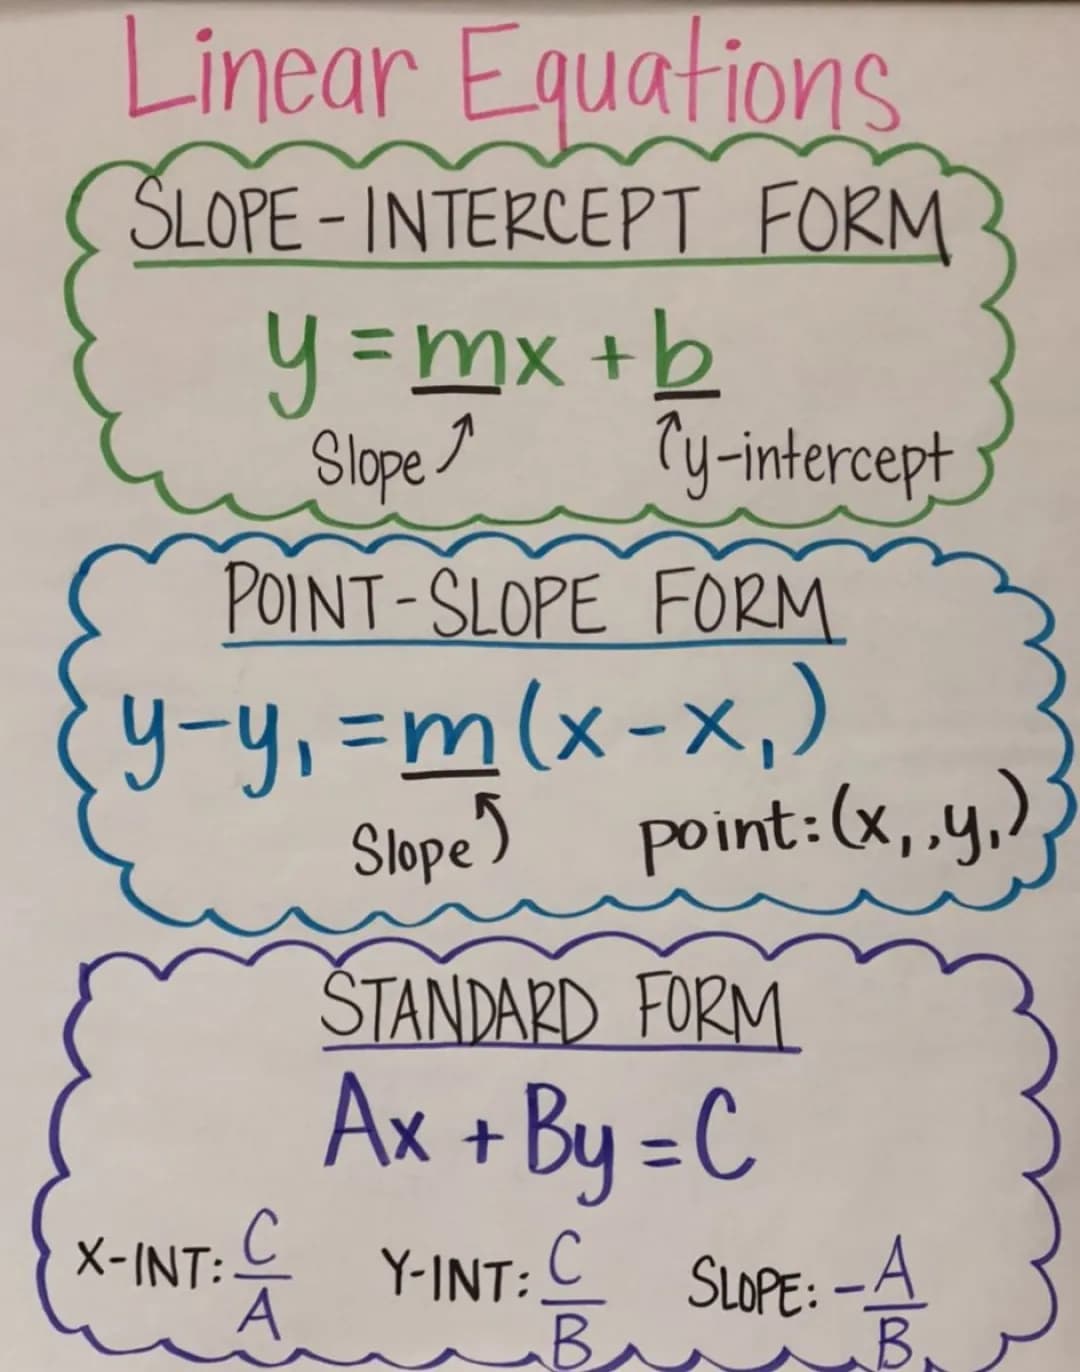 Linear Equations
SLOPE-INTERCEPT FORM
y = mx + b
Slope y-intercept
POINT-SLOPE FORM
y-y₁ = m(x-x₁)
Slope point: (x₁,y₁)
STANDARD FORM
Ax + By = C
X-INT: C/A Y-INT: C/B SLOPE: -A/B